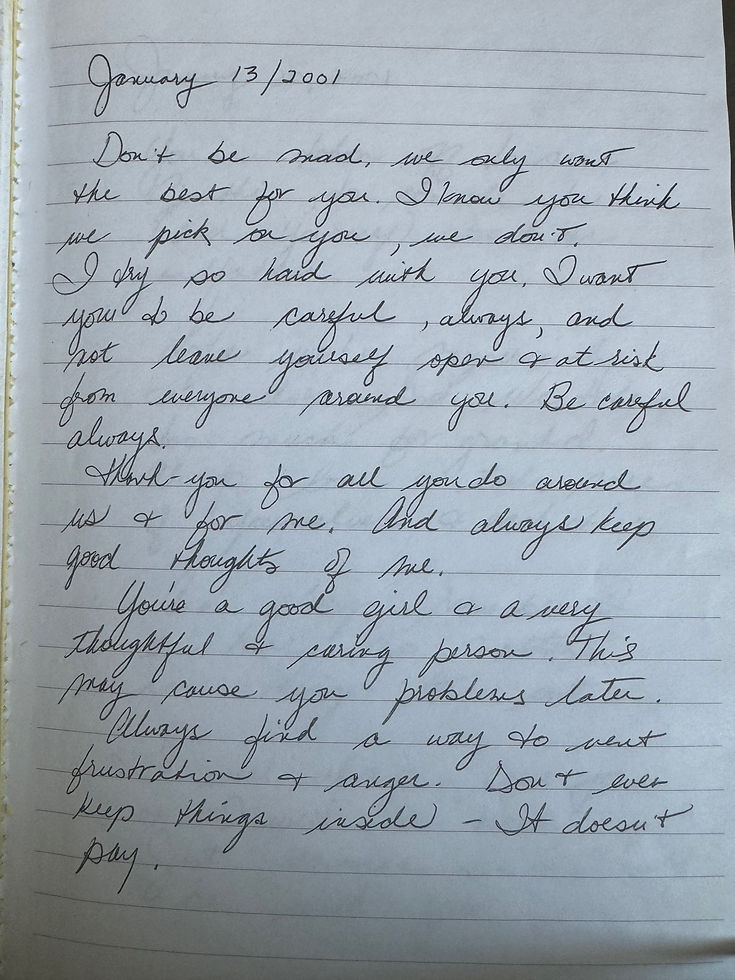 January 13/2001
Don't be mad, we only want
the best for you. I know you think
we pick on you, we don't.
I try so hard with you, I want
you to be careful, always, and
not leave yourself open & at risk
from everyone around you. Be careful
always.
Thank-you for all you do around
us & for me. And always keep
good thoughts of me.
You're a good girl & a very
thoughtful & caring person. This
may cause you problems later.
Always find a way to vent
frustration & anger. Don't ever
keep things inside - It doesn't
pay.